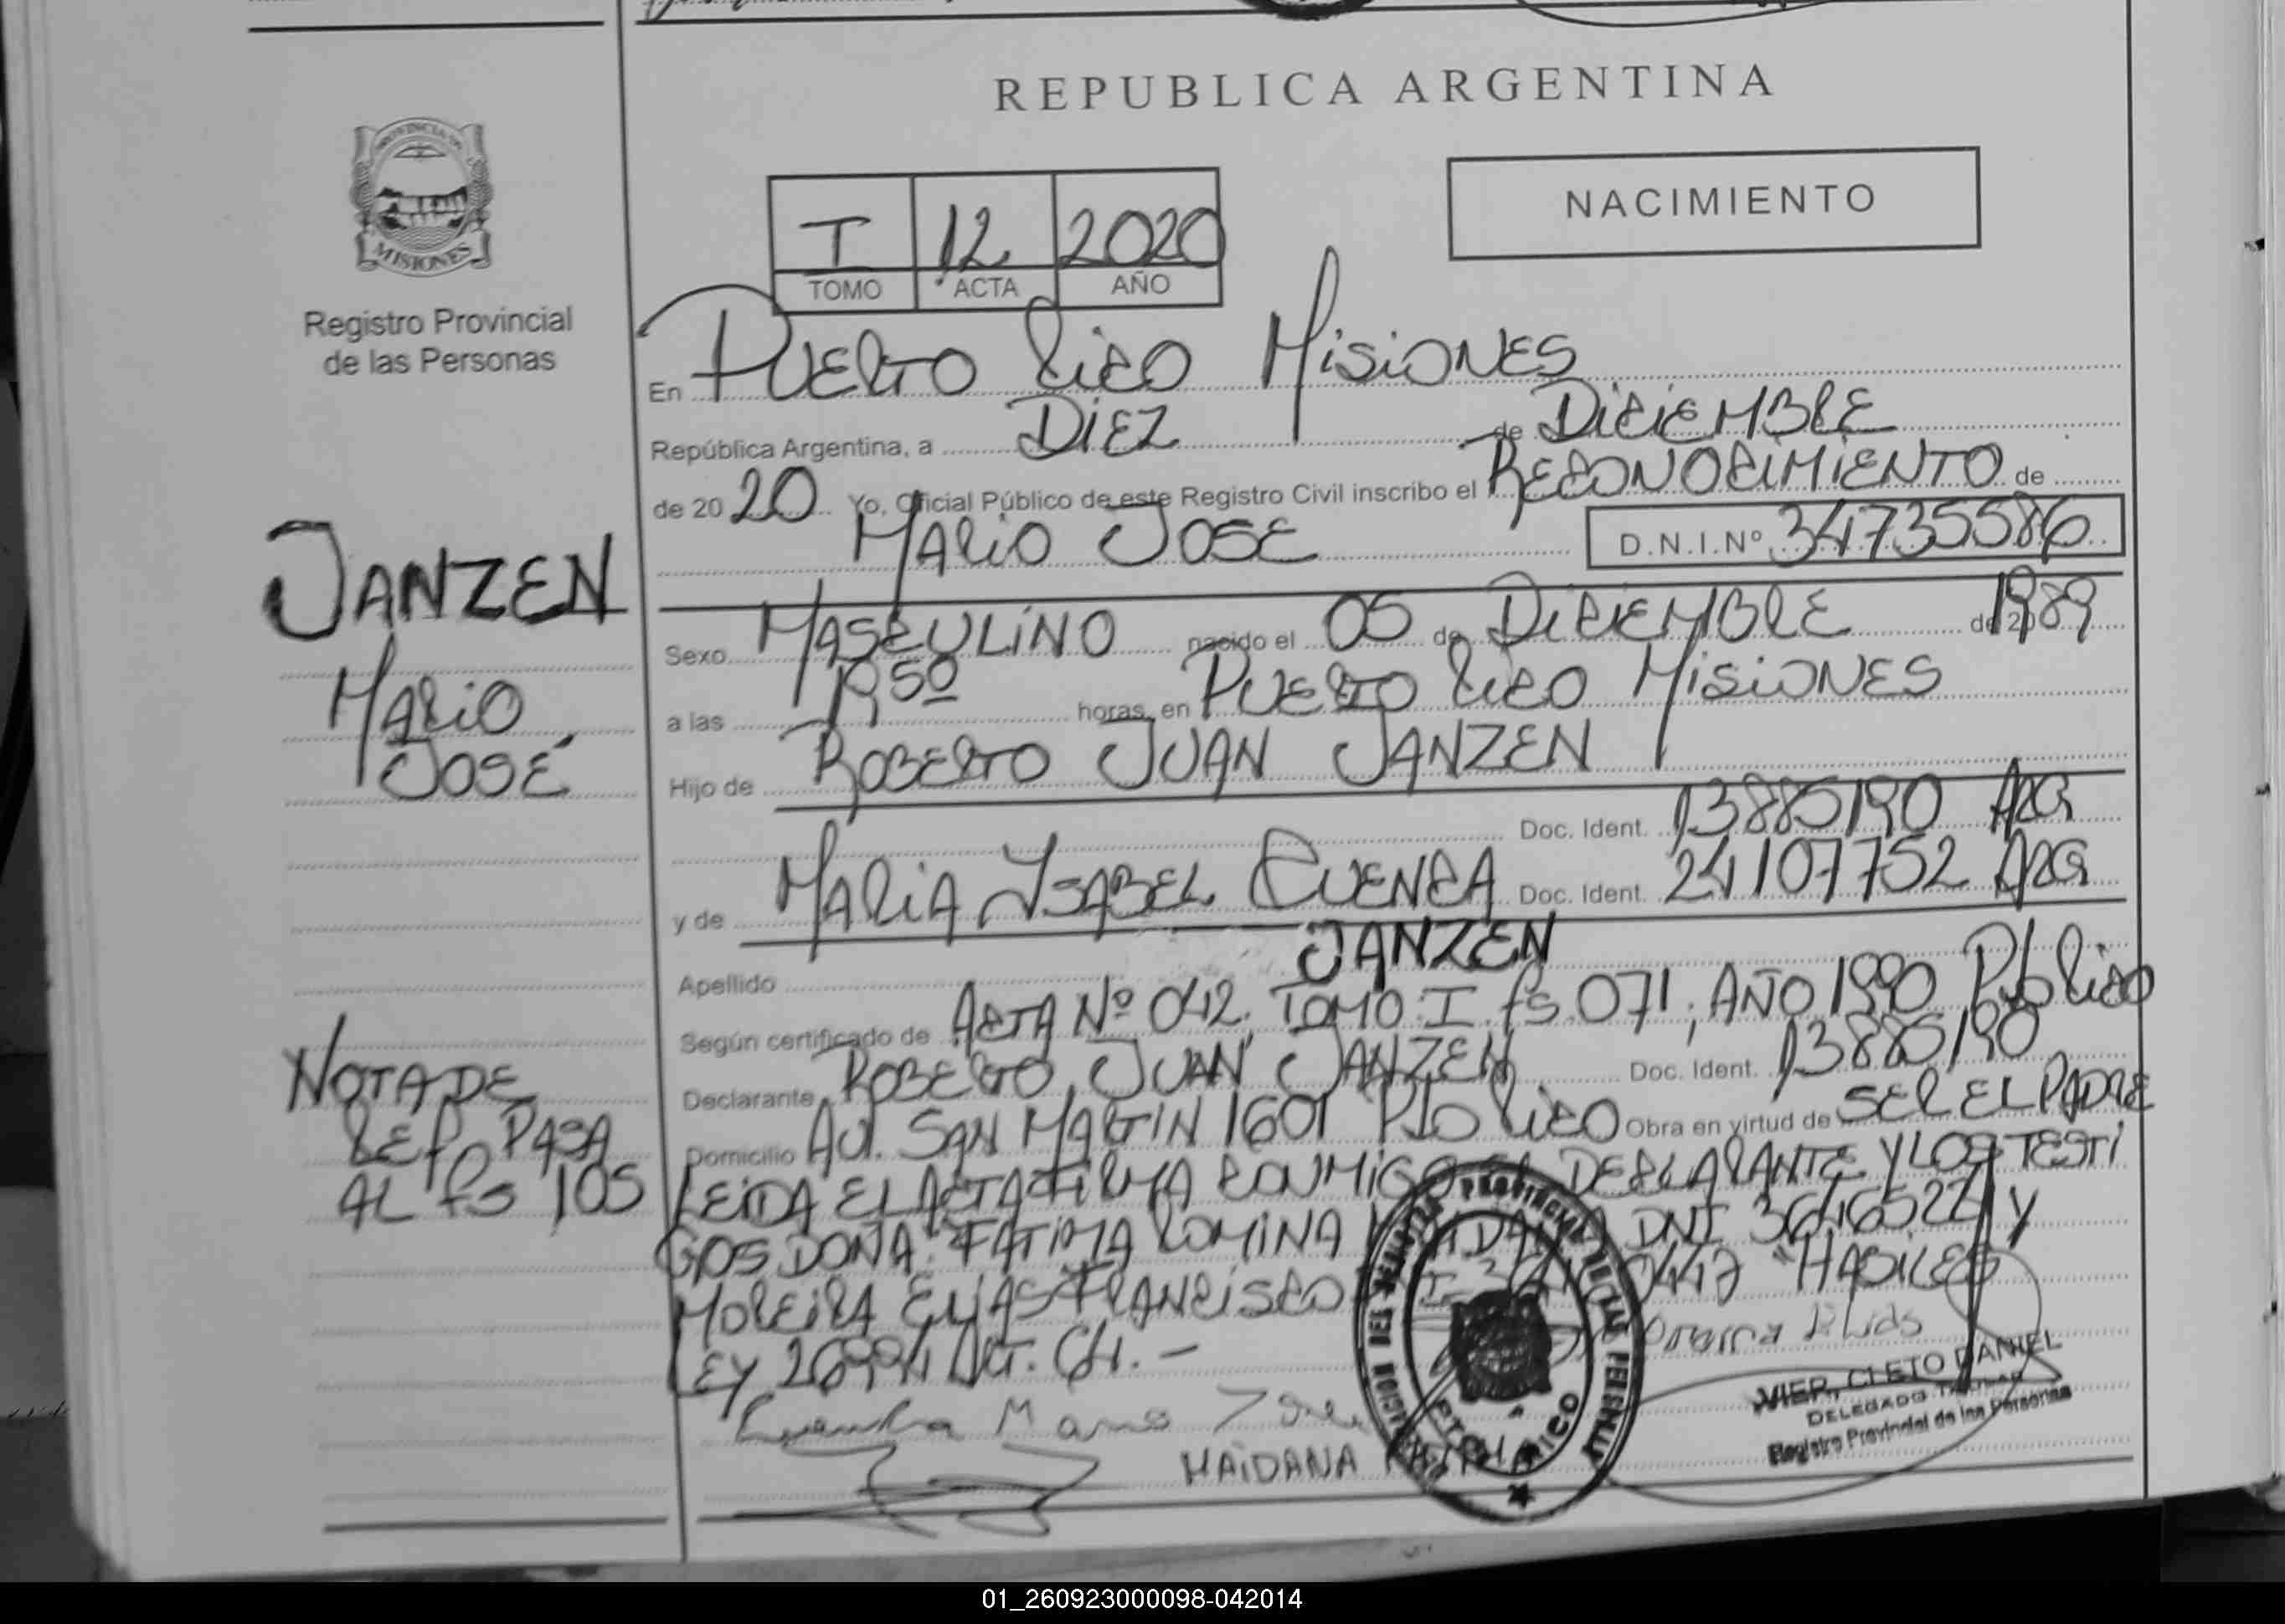 REPUBLICA ARGENTINA
PROVINCIA DE
MISIONES
Registro Provincial
de las Personas
T 12 2020
TOMO ACTA AÑO
NACIMIENTO
En PUERTO RICO MISIONES
República Argentina, a DIEZ de DICIEMBRE
de 2020 Yo, Oficial Público de este Registro Civil inscribo el RECONOCIMIENTO de
MARIO JOSE D.N.I.Nº 34735586
JANZEN
MARIO
JOSÉ
Sexo MASCULINO nacido el 05 de DICIEMBRE de 1989
a las 1950 horas, en PUERTO RICO MISIONES
Hijo de ROBERTO JUAN JANZEN
Doc. Ident. 13885190 ARG
y de MARIA YSABEL CUENCA Doc. Ident. 24107752 ARG
Apellido JANZEN
Según certificado de ACTA Nº 042. TOMO: I. fs. 071, AÑO 1990 Pto Rico
Declarante ROBERTO JUAN JANZEN Doc. Ident. 13885190
Domicilio AV. SAN MARTIN 1601 Pto RICO Obra en virtud de SER EL PADRE
NOTA DE
REFª PASA
AL fs 105
LEIDA EL ACTA FIRMA CONMIGO EL DECLARANTE Y LOS TESTI
GOS DOÑA: FATIMA ROMINA DNI 36465221 Y
MOREIRA ELIAS FRANCISCO 447 "HABILES
LEY 26994 ART. 64. -
Cuenca Mario Jose
MAIDANA
PTO. RICO
VIER, CLETO DANIEL
DELEGADO TITULAR
Registro Provincial de las Personas
01_260923000098-042014